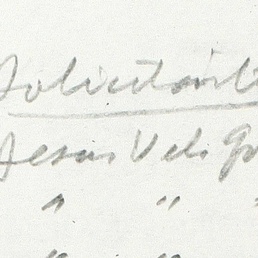 Solicitante
Jesus Vel. Go
" "
" "